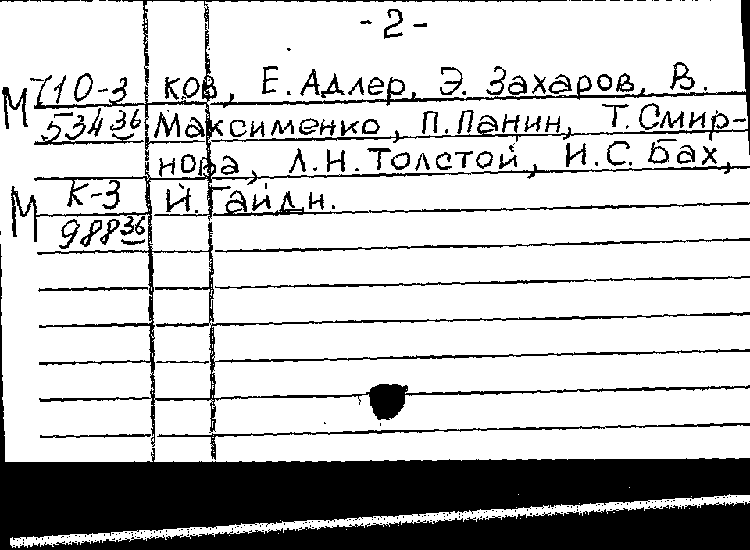 -2-
М Т10-3 ков, Е. Адлер, Э. Захаров, В.
534 36 Максименко, П. Панин, Т. Смир-
нова, Л.Н. Толстой, И.С. Бах,
М К-3 Й. Гайдн.
988 36